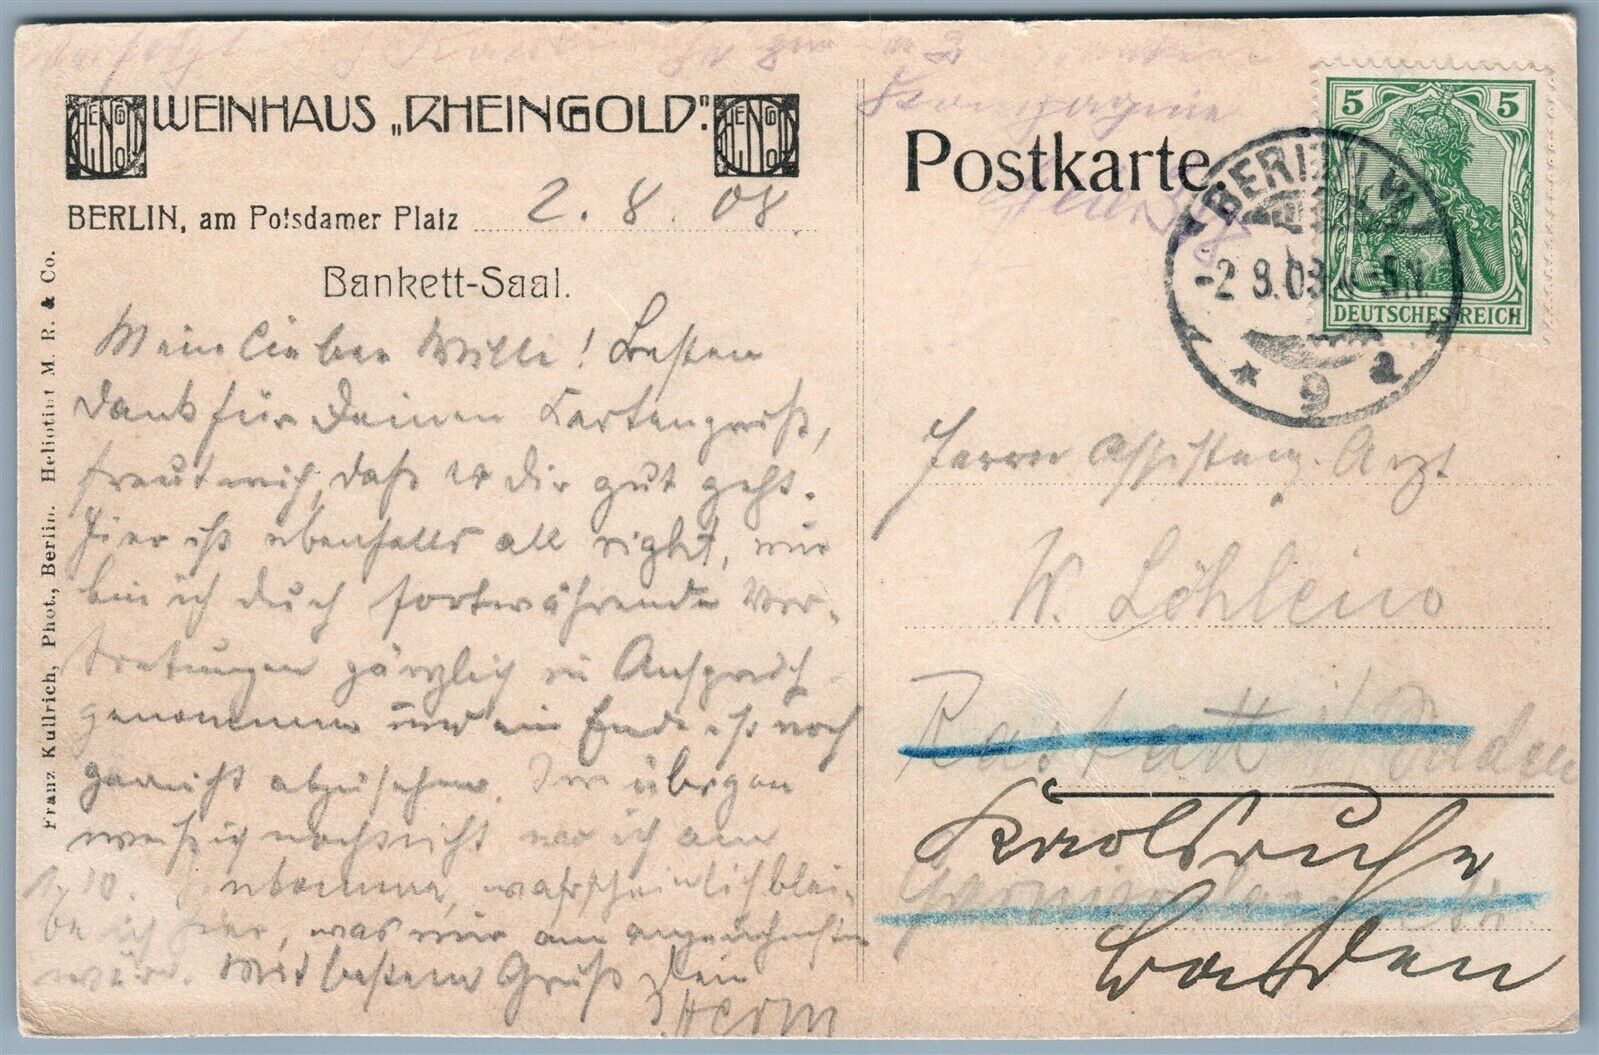 WEINHAUS „RHEINGOLD".
BERLIN, am Potsdamer Platz 2. 8. 08.
Bankett-Saal.
Mein lieber Willi! Besten
Dank für Deinen Kartengruß,
freut mich, daß es dir gut geht.
Hier ist ebenfalls all right, nur
bin ich durch fortwährende Ver-
tretungen gänzlich in Anspruch
genommen und ein Ende ist noch
garnicht abzusehen. Im übrigen
weiß ich noch nicht wo ich am
1/10. wahrscheinlich blei-
be ich hier, was mir am angenehmsten
wäre. Mit bestem Gruß Dein
Herm
Franz Kullrich, Phot., Berlin. Heliotint M. R. & Co.
Kompagnie
Postkarte.
5 5
DEUTSCHES REICH
BERLIN W
-2.8.08
* 9 a
Herrn Assistenz-Arzt
W. Löhlein
Rastatt i/ Baden
Karlsruhe
Garnisonlazarett
Baden